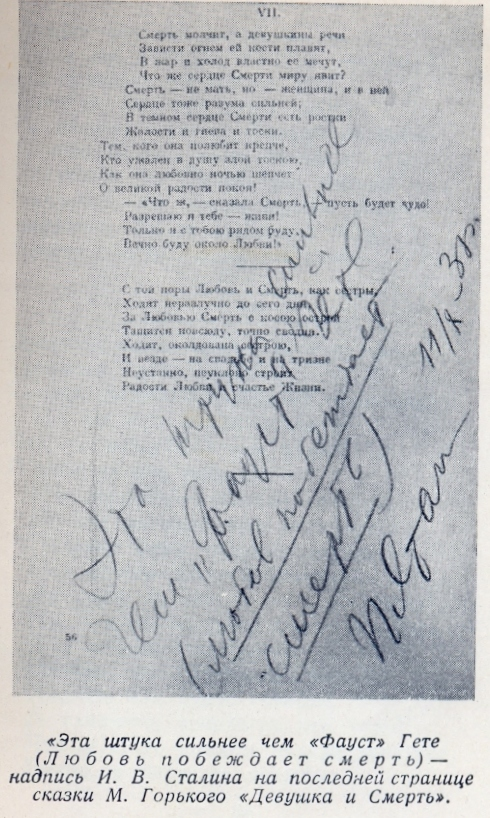 VII.
Смерть молчит, а девушкины речи
Зависти огнем ей кости плавят,
В жар и холод властно ее мечут,
Что же сердце Смерти миру явит?
Смерть — не мать, но — женщина, и в ней
Сердце тоже разума сильней;
В темном сердце Смерти есть ростки
Жалости и гнева и тоски.
Тем, кого она полюбит крепче,
Кто ужален в душу злой тоскою,
Как она любовно ночью шепчет
О великой радости покоя!
— «Что ж, — сказала Смерть, — пусть будет чудо!
Разрешаю я тебе — живи!
Только я с тобою рядом буду,
Вечно буду около Любви!»
С той поры Любовь и Смерть, как сестры,
Ходят неразлучно до сего дня,
За Любовью Смерть с косою острой
Тащится повсюду, точно сводня.
Ходит, околдована сестрою,
И везде — на свадьбе и на тризне
Неустанно, неуклонно строит
Радости Любви и счастье Жизни.
Эта штука сильнее
чем "Фауст" Гете
(любовь побеждает
смерть)
И. Сталин
11/X-31г.
56
«Эта штука сильнее чем «Фауст» Гете
(Любовь побеждает смерть) —
надпись И. В. Сталина на последней странице
сказки М. Горького «Девушка и Смерть».